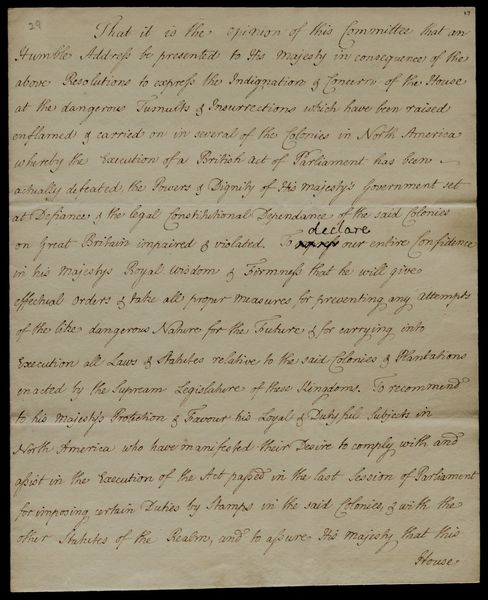 29
17
That it is the opinion of this Committee that an
Humble Address be presented to His Majesty in consequence of the
above Resolutions to express the Indignation & Concern of the House
at the dangerous Tumults & Insurrections which have been raised
enflamed & carried on in several of the Colonies in North America
whereby the Execution of a British Act of Parliament has been
actually defeated, the Powers & Dignity of His Majesty's Government set
at Defiance, & the legal Constitutional Dependance of the said Colonies
declare
on Great Britain impaired & violated. To our entire Confidence
in his Majestys Royal Wisdom & Firmness that he will give
effectual orders & take all proper Measures for preventing any Attempts
of the like dangerous Nature for the Future & for carrying into
Execution all Laws & Statutes relative to the said Colonies & Plantations
enacted by the Supream Legislature of these Kingdoms. To recommend
to his Majesty's Protection & Favour his Loyal & Dutyful Subjects in
North America who have manifested their Desire to comply with and
assist in the Execution of the Act passed in the last Session of Parliament
for imposing certain Duties by Stamps in the said Colonies, & with the
other Statutes of the Realm, and to assure His Majesty that this
House